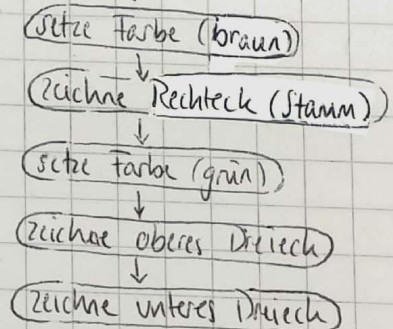 setze Farbe (braun)
zeichne Rechteck (Stamm)
setze Farbe (grün)
zeichne oberes Dreieck
zeichne unteres Dreieck